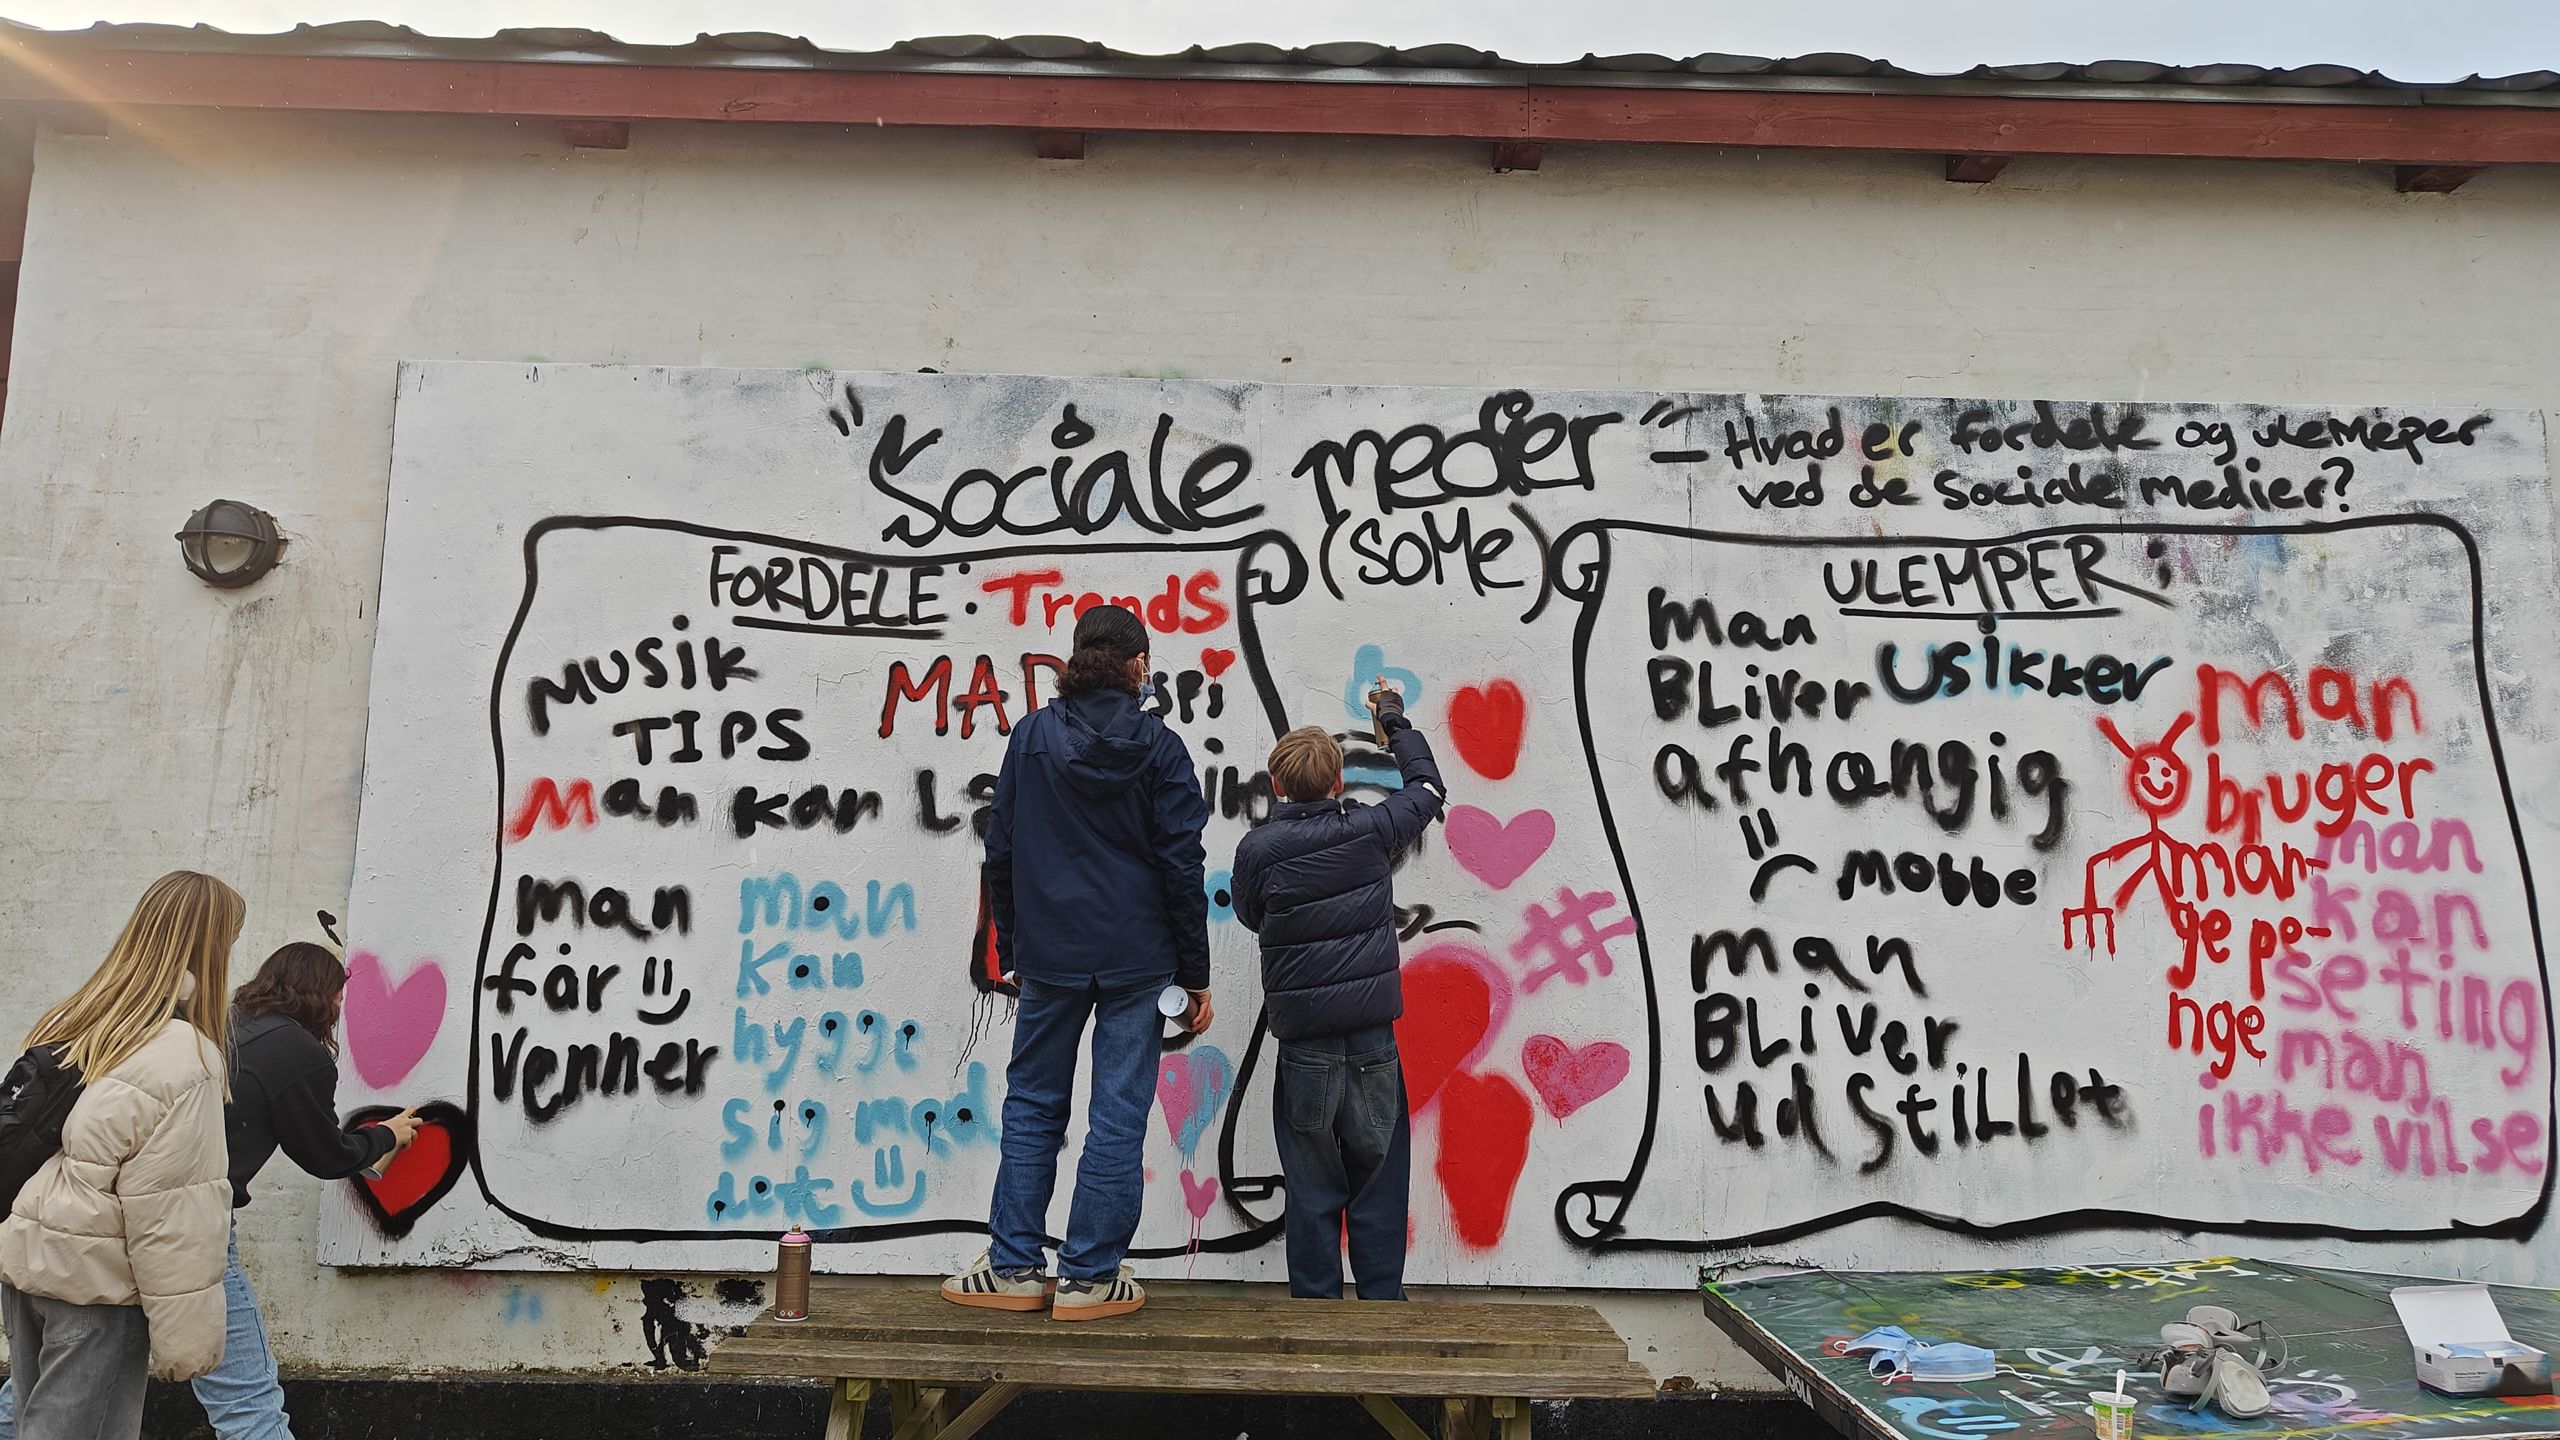 "Sociale medier"
(SoMe)
- Hvad er fordele og ulemeper
ved de Sociale medier?
FORDELE:
Trends
MUSIK
TIPS
MAD
Man kan
man
får
venner
man
kan
hygge
sig med
det
ULEMPER:
man
BLiver usikker
afhængig
mobbe
man
BLiver
udstillet
man
bruger
man-
ge pe-
nge
man
kan
se ting
man
ikke vil se
#
JOOLA